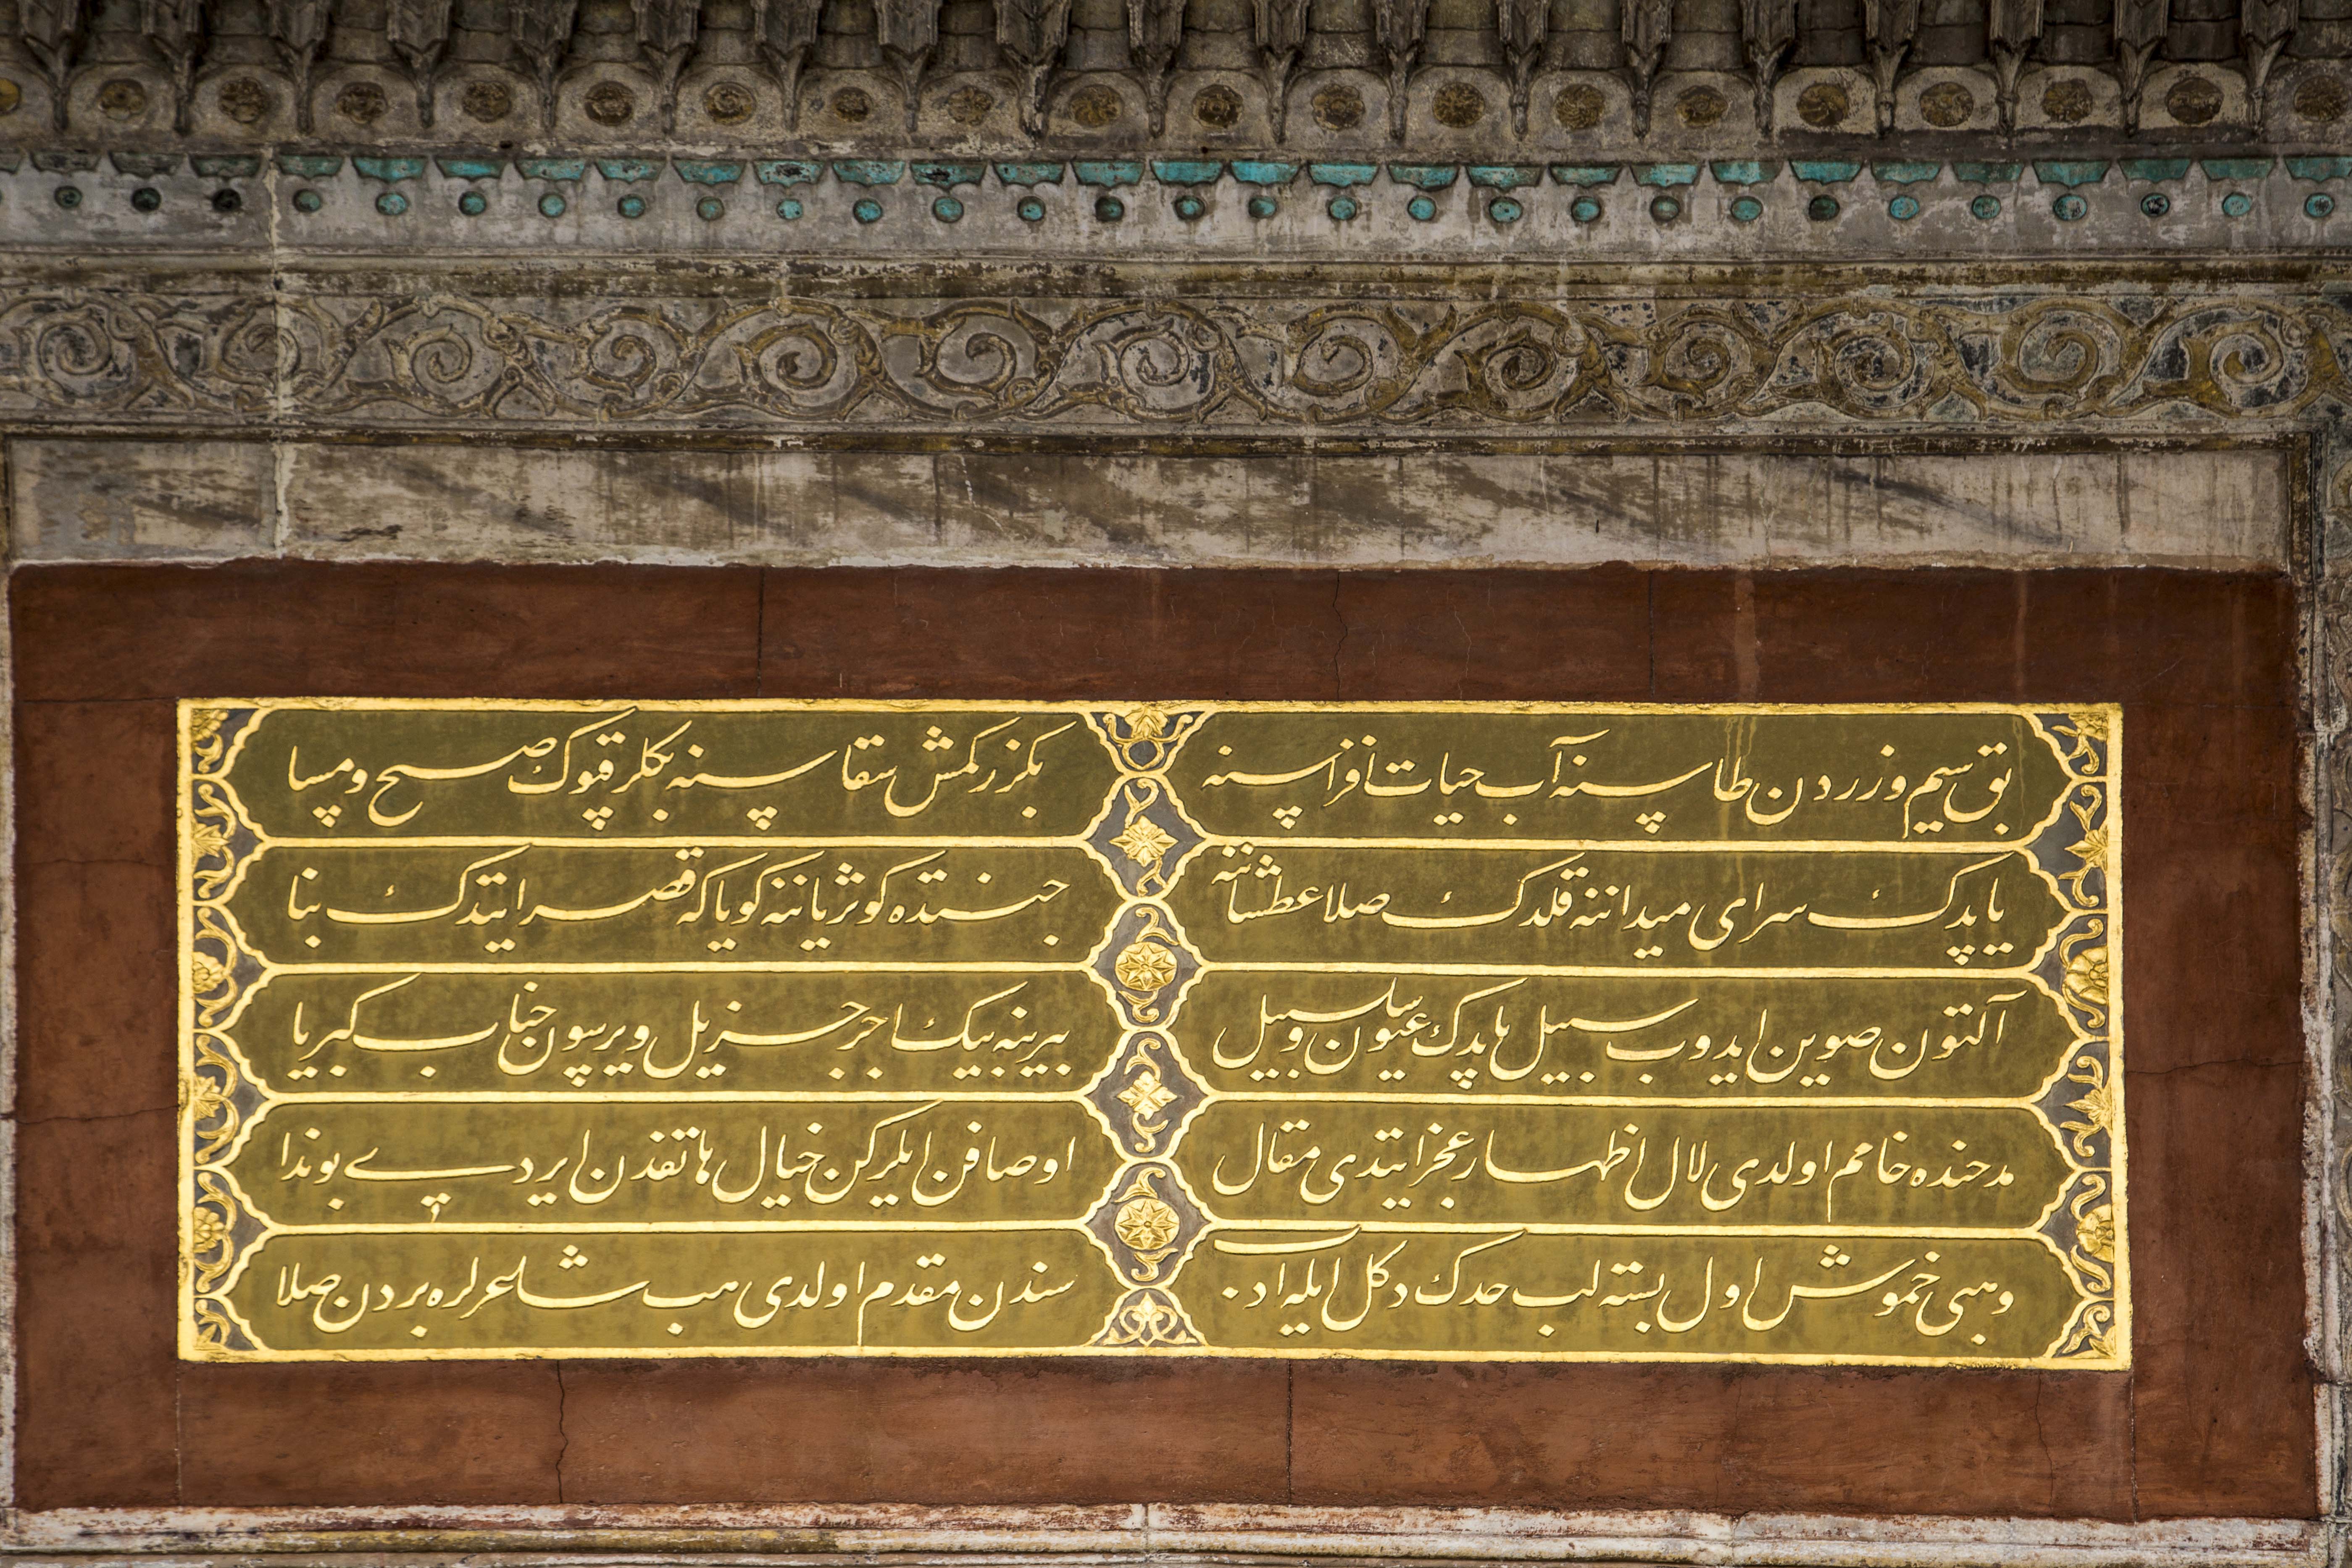 بق سیم و زردن طاسنه آب حیات افزاسنه
بکزرکمش سقاسنه بکلر قپوک صبح و مسا
یاپدک سرای میداننه قلدک صلا عطشاننه
جنتده کوثر یاننه کویا که قصر ایتدک بنا
آلتون صویین ایدوب سبیل یاپدک عیون و سلسبیل
بیرینه بیک اجر جزیل ویرسون جناب کبریا
مدحنده خامم اولدی لال اظهار عجز ایتدی مقال
اوصافن ایلرکن خیال هاتفدن ایردی بو ندا
وهبی خموش اول بسته لب حدک دکل ایله ادب
سندن مقدم اولدی هب شاعرلره بردن صلا